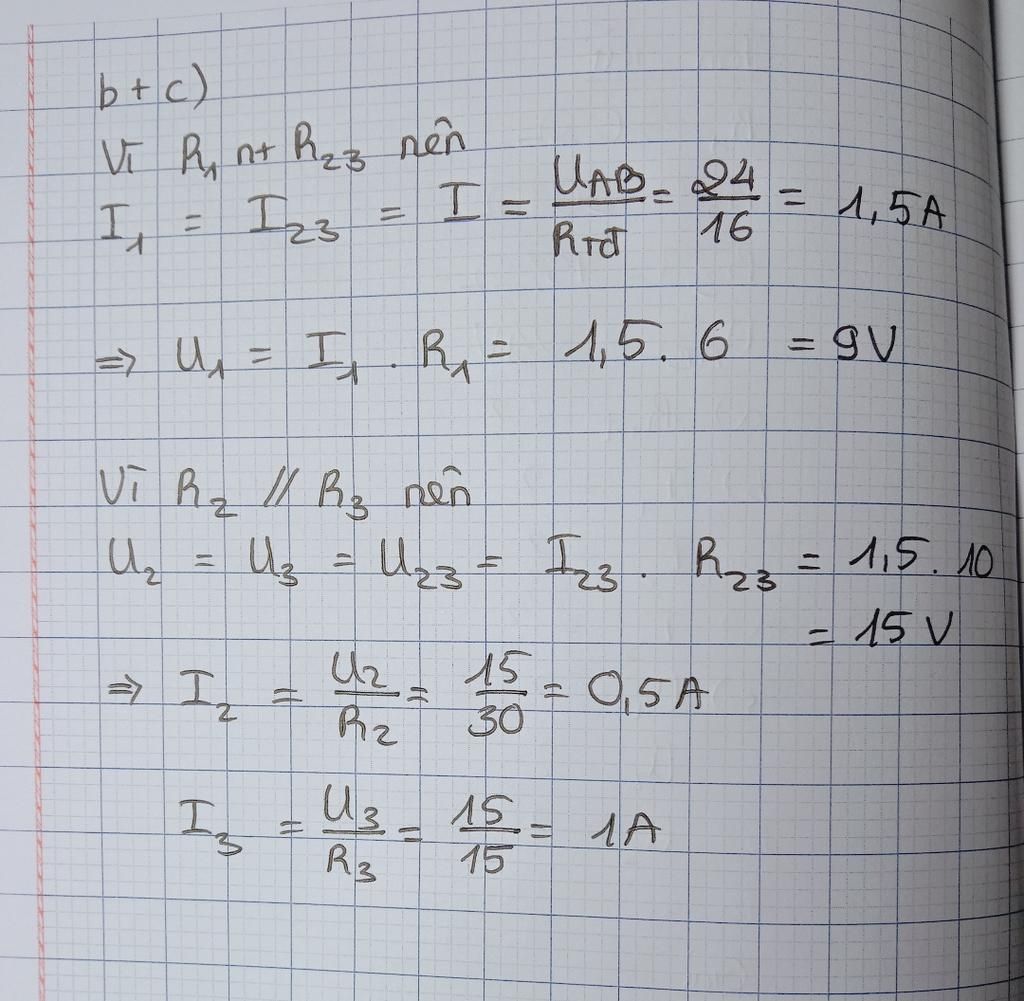 b + c)
Vì R₁ nt R₂₃ nên
I₁ = I₂₃ = I = U_AB/R_TĐ = 24/16 = 1,5A
⇒ U₁ = I₁ . R₁ = 1,5 . 6 = 9V
Vì R₂ // R₃ nên
U₂ = U₃ = U₂₃ = I₂₃ . R₂₃ = 1,5 . 10
= 15 V
⇒ I₂ = U₂/R₂ = 15/30 = 0,5A
I₃ = U₃/R₃ = 15/15 = 1A